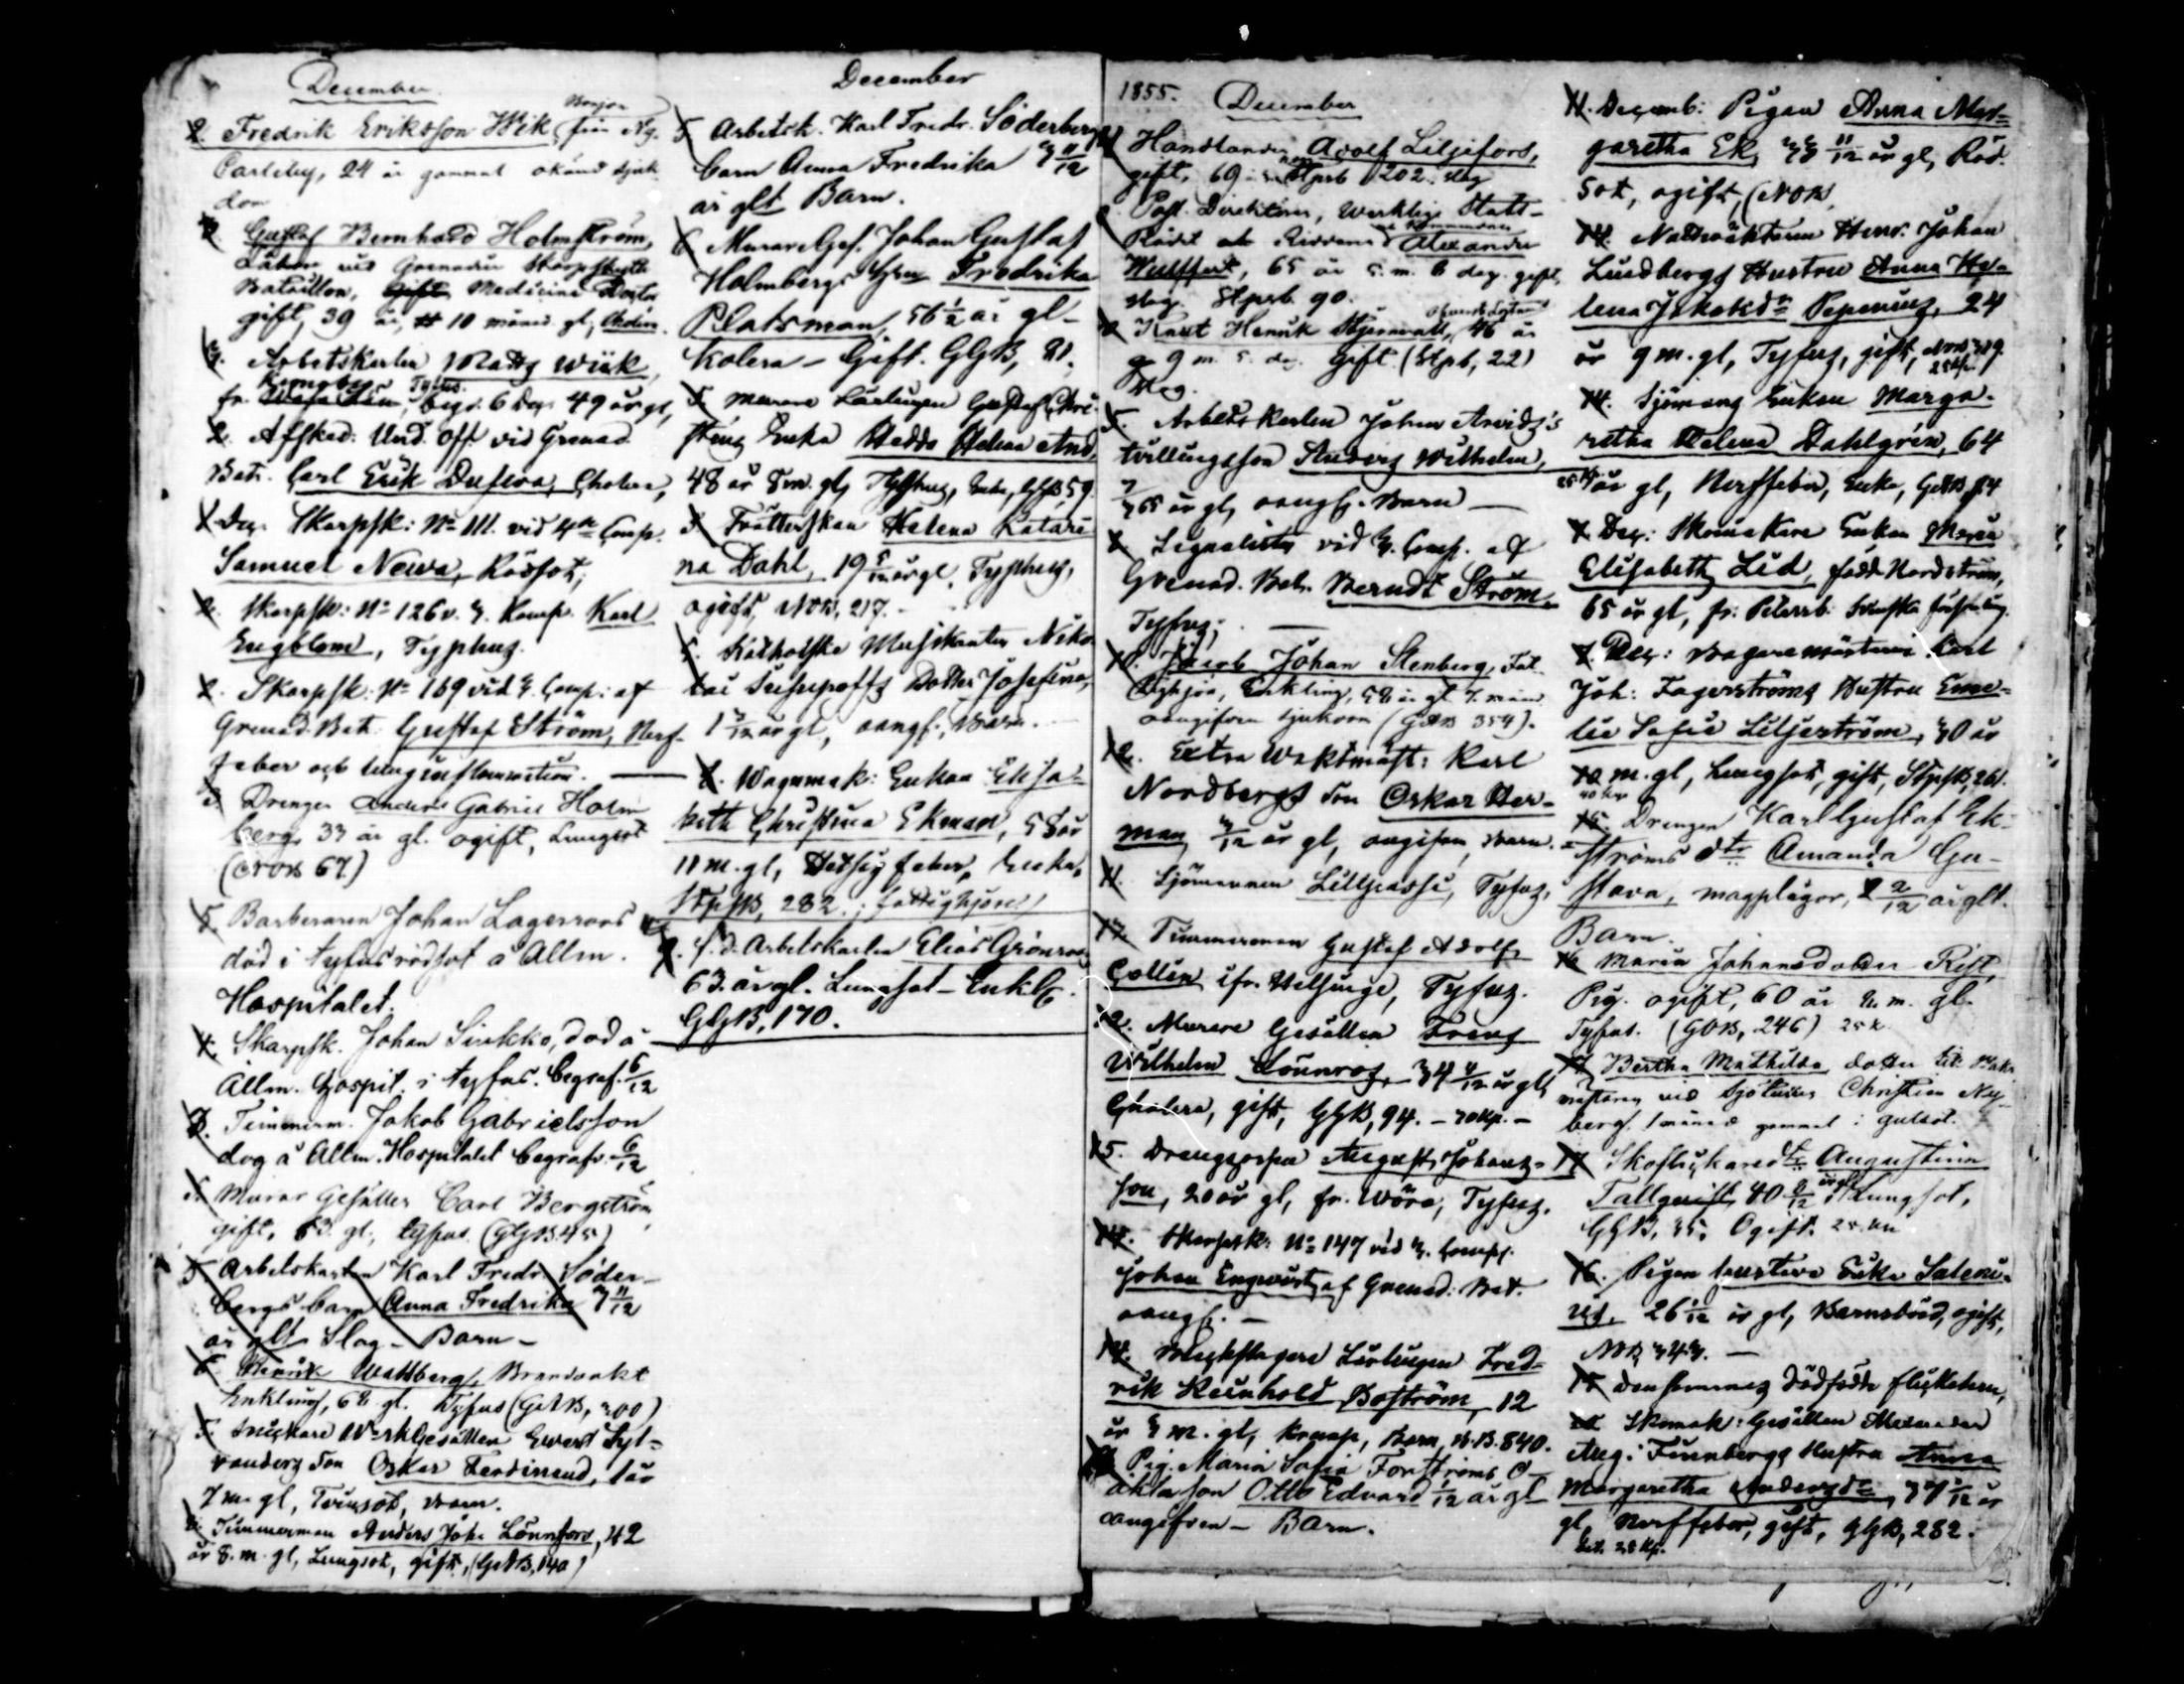 December
2. Fredrik Eriksson Wik, från Ny-
Carleby, 24 år gammal okänd sjuk
dom
Gustaf Bernhard Holmström,
Läkare vid Grenadier Skarpskytte
Bataillon, Medicine Doctor
gift, 39 år, 10 månad. gl, Cholera
3. Arbetskarlen Matts Wiik,
fr. Tyfus. begr. 6 Dec. 49 år gl,
2. Afsked: Und. Off vid Grenad.
Bat. Carl Erik Dufva, Cholera,
1 Dec. Skarpsk: No 111. vid 4de Comp.
Samuel Newa, Rödsot,
2. Skarpsk: No 126 v. 3. Komp. Karl
Engblom, Typhus.
2. Skarpsk: No 169 vid 3. Comp: af
Grenad. Bat. Gustaf Ström, Nerf-
feber och lunginflammation.
3 Drengen Anders Gabriel Holm
berg, 33 år gl. ogift, Lungsot
(NoB 67)
5. Barberaren Johan Lagerroos
död i tyfus rödsot å Allm.
Hospitalet.
4. Skarpsk. Johan Sirkko, död å
Allm. Hospit. i tyfus. begraf. 6/12
3. Timmerm. Jakob Gabrielsson
dog å Allm. Hospitalet begrafv. 6/12
5. Murar Gesällen Carl Bergström
gift, 63. gl, tyfus (GGB 45)
5 Arbetskarlen Karl Fredr. Söder-
bergs barn Anna Fredrika 3 11/12
år glt Slag - Barn -
6. Henrik Wattberg, Brandvakt
Enkling, 68 gl. Tyfus (GGB, 300)
5. Snickare Gesällen Ewert Syl-
vanders son Oskar Ferdinand, 1 år
7 m. gl, Barn.
8. Timmerman Anders Joh. Lönnfors, 42
år 8. m. gl, Lungsot, gift, (GGB, 140)
December
5. Arbetsk. Karl Fredr. Söderbergs
barn Anna Fredrika 3 11/12
år glt Barn.
6. Murare Ges. Johan Gustaf
Holmbergs Hru Fredrika
Platsman, 56 1/2 år gl -
Kolera - Gift. GGB, 81.
5. Murare Lärlingen Gustaf
Enka Hedda Helena And,
48 år 8 m. gl, Typhus, Enka, GGB 59.
3. Helena Katari
na Dahl, 19 5/12 år gl, Typhus,
ogift, NoB, 217.
5. Katholske Musikanten Niko
lai dotter Josefina,
1 3/12 år gl, oangf., Barn.
8. Wagnmak: Enkan Elisa-
beth Christina Ekman, 58 år
11 m. gl, Hetsig feber, Enka,
StpsB, 282. ; fattighjon
9. f. d. Arbetskarlen Elias Grönroos
63. år gl. Lungsot - Enklg.
GGB, 170.
1855. December
Handlanden Adolf Liljefors,
gift, 69 Stpsb 202. slag
Post Direktören, Werklige Stats-
Rådet och Riddaren Alexander
Wulffert, 65 år 5. m. 6 dag. gift,
slag. Stpsb. 90.
Knut Henrik Stjernvall, 46 år
9 m. 5. da. gift (Stpb, 22)
slag.
5. Arbetskarlen Johan Arvids's
tvillingsson Anders Wilhelm,
7/365 år gl, oangf. Barn -
8. Signalisten vid 3. Comp. af
Grenad. Bat. Berndt Ström.
Tyfus;
10. Jacob Johan Stenberg, Fat
tighjon, Enkling, 58 år gl 7. mån
oangifven sjukdom (GGB 354).
12. Extra Waktmäst: Karl
Nordbergs son Oskar Her-
man, 3/12 år gl, oangifven, Barn.
11. Sjömannen Tyfus,
17. Timmerman Gustaf Adolf
Collin ifr. Helsinge, Tyfus.
12. Murare Gesällen Frans
Wilhelm Lönnros, 34 4/12 år gl,
Cholera, gift, GGB, 94. - 70 Kp. -
15. Drengpojken August Johans-
son, 20 år gl, fr. Wörå, Tyfus.
14. Skarpsk: No 147 vid 3. Comp.
Johan Engqvist af Grenad: Bat.
oangf. -
14. Bleckslagare Lärlingen Fred-
rik Reinhold Boström, 12
år 3 m. gl, Barn, N.B. 840.
Pig. Maria Sofia Forströms o-
äkta son Otto Edvard 1/12 år gl
oangifven - Barn.
11. Decemb: Pigan Anna Mar-
garetha Ek, 23 11/12 år gl, Röd-
sot, ogift, (NoB,
14. Nattväktaren Henr. Johan
Lindbergs Hustru Anna He-
lena Jakobsdr Pepening, 24
år 9 m. gl, Tyfus, gift, NoB 319.
14. Sjömans Enkan Marga-
retha Helena Dahlgrén, 64
år gl, Nerffeber, Enka, GGB, 84
7. Dec: Skomakare Enkan Maria
Elisabeth Lid, född Nordström,
65 år gl, fr: Petersb. svenska församling.
7. Dec: Bagaremästaren Karl
Joh: Fagerströms Hustru Eme-
lie Sofie Liljeström, 30 år
10 m. gl, Lungsot, gift, StpsB, 261.
15. Drengen Karl Gustaf Ek-
ströms dtr Amanda Gu-
stava, magplågor, 2 2/12 år glt.
Barn.
16 Maria Johansdotter Rist,
Pig. ogift, 60 år 8. m. gl.
Tyfus. (GGB, 246) 25 k.
17 Bertha Mathilda dotter till
mästaren vid Sjötullen Christian Ny-
berg. 1 månad gammal i gulsot.
17 dtr Augustina
Tallqvist, 40 8/12 år gl, Lungsot,
GGB, 35. Ogift. 25. kp
16. Pigan Gustava Erika Saleni-
us, 26 1/12 år gl, Barnsbörd, ogift,
NoB 343. -
15 Densammas dödfödde flickebarn,
Skomak: Gesällen Alexander
Aug: Finnbergs Hustru Anna
Margaretha Andersdr, 37 1/12 år
gl, Nerffeber, gift, GGB, 282.